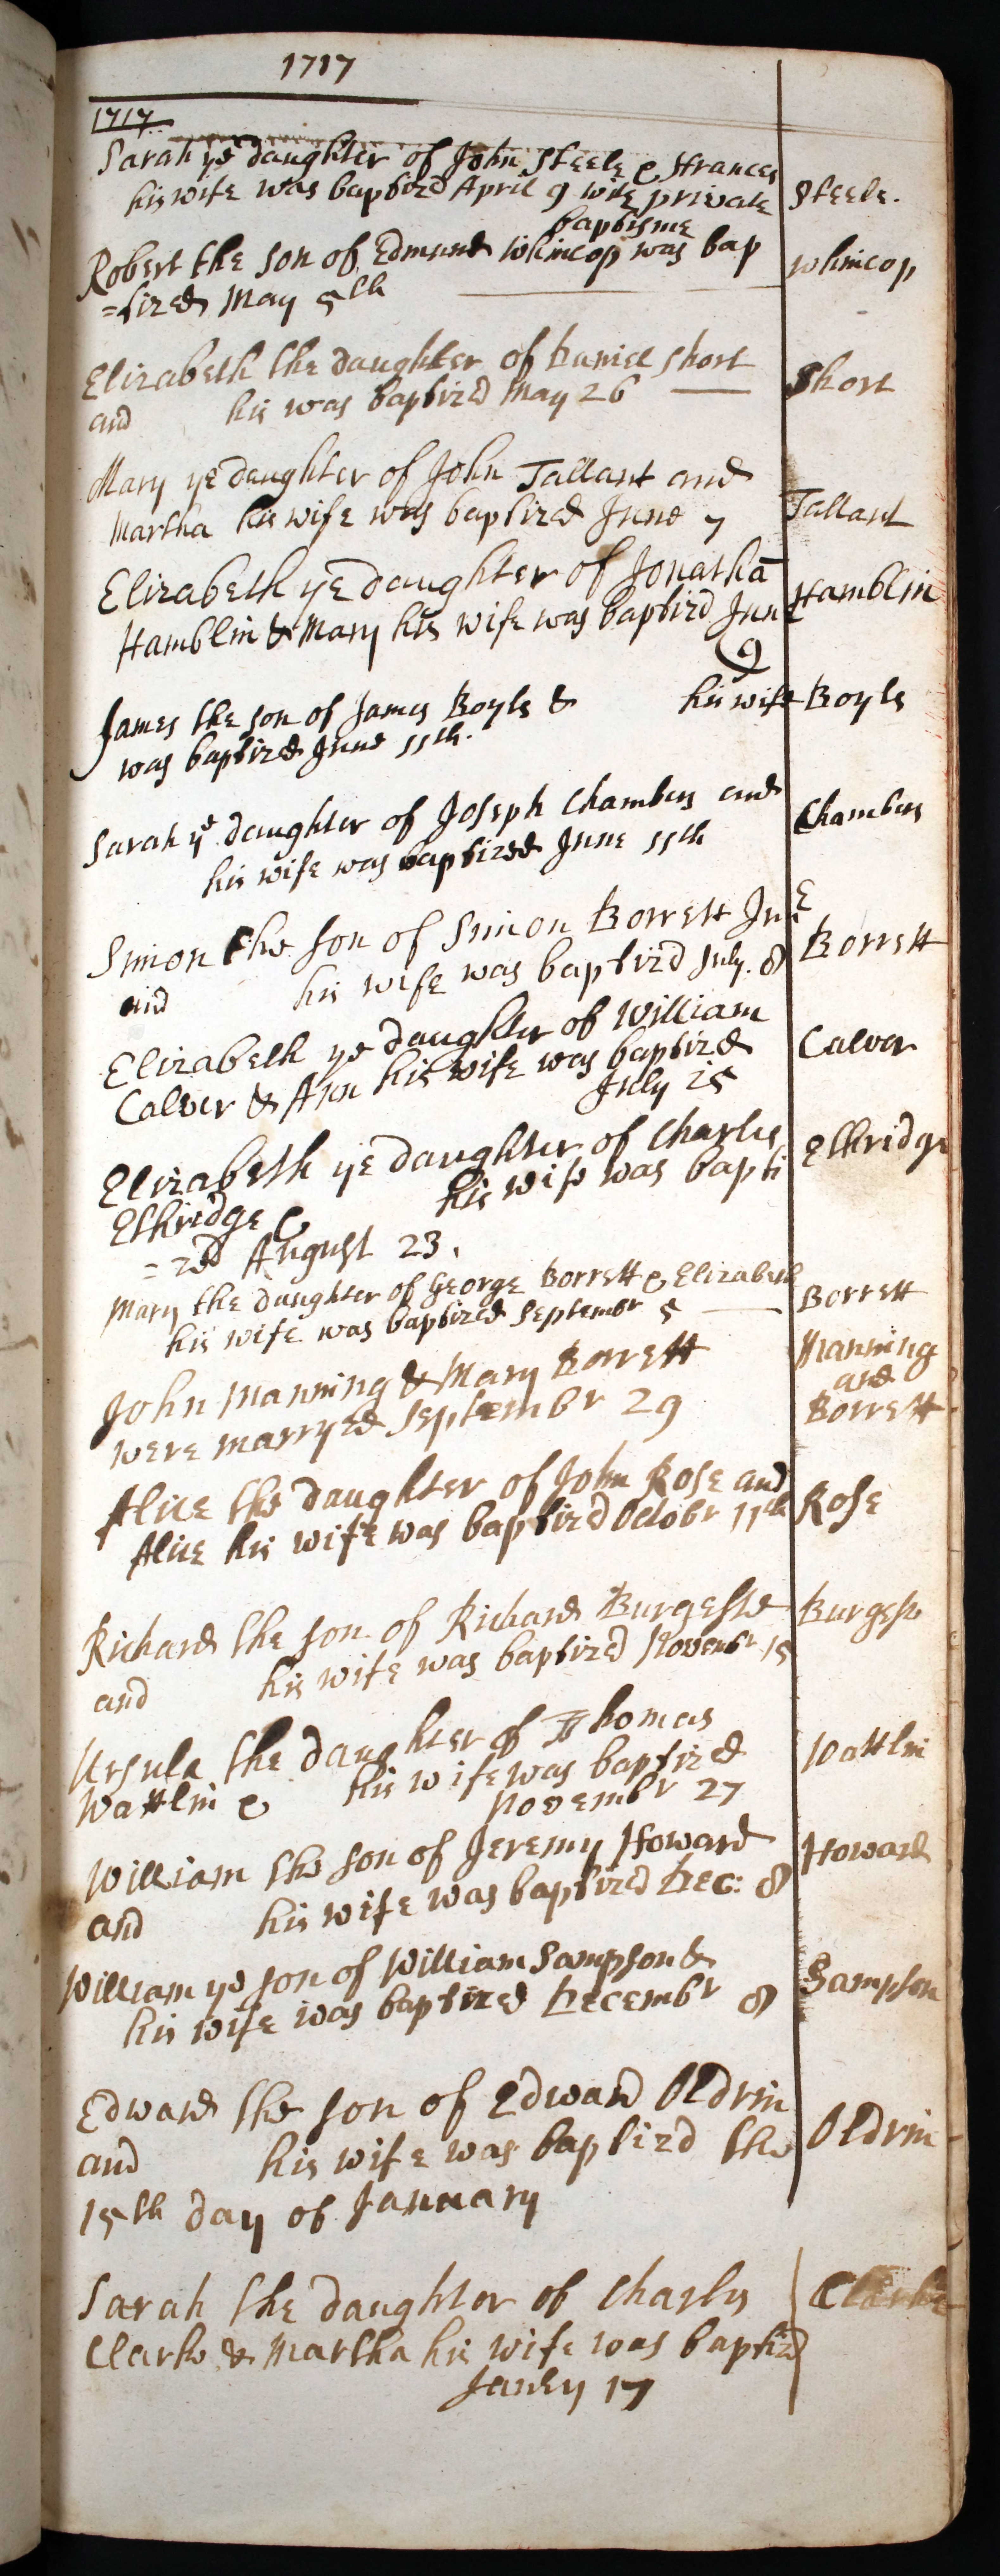 1717
1717
Sarah ye daughter of John Steele & Frances
his wife was baptized April 9 wth private
baptisme
Steele.
Robert the son of Edmund Whincop was bap
=tized May 5th
Whincop
Elizabeth the daughter of Daniel Short
and his was baptizd May 26
Short
Mary ye daughter of John Tallant and
Martha his wife was baptized June 7
Tallant
Elizabeth ye daughter of Jonathā
Hamblin & Mary his wife was baptizd June
9
Hamblin
James the son of James Boyls & his wife
was baptized June 11th.
Boyls
Sarah ye daughter of Joseph Chambers and
his wife was baptized June 11th
Chambers
Simon the son of Simon Borrett Jue
and his wife was baptizd July. 8
Borrett
Elizabeth ye daughter of William
Calver & Ann his wife was baptizd
July 25
Calver
Elizabeth ye daughter of Charles
Ethridge & his wife was bapti
=zd August 23.
Ethridge
Mary the daughter of George Borrett & Elizabeth
his wife was baptized Septembr 5
Borrett
John Manning & Mary Borrett
were marryed Septembr 29
Manning
and
Borrett
Alice the daughter of John Rose and
Alice his wife was baptizd Octobr 11th
Rose
Richard the son of Richard Burgesse
and his wife was baptizd Novembr 15
Burgess
Ursula the daughter of Thomas
Wattlin & his wife was baptized
Novembr 27
Wattlin
William the son of Jeremy Howard
and his wife was baptized Dec: 8
Howard
William ye son of William Sampson &
his wife was baptized Decembr 8
Sampson
Edward the son of Edward Oldrin
and his wife was baptizd the
15th day of January
Oldrin
Sarah the daughter of Charles
Clarke & Martha his wife was baptizd
Janry 17
Clarke